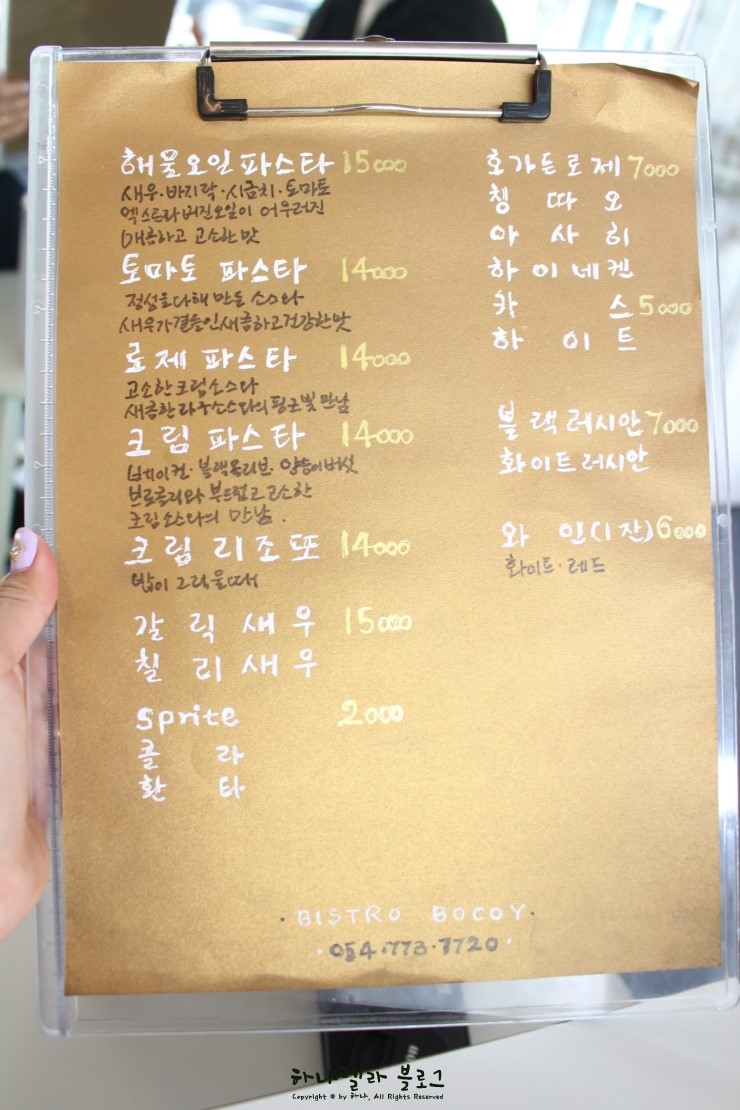 해물오일파스타 15000
새우·바지락·시금치·토마토
엑스트라버진오일이 어우러진
매콤하고 고소한 맛
토마토 파스타 14000
정성을다해 만든 소스와
새우가곁들인새콤하고건강한맛
로제 파스타 14000
고소한크림소스와
새콤한라구소스와의 핑크빛 만남
크림 파스타 14000
베이컨·블랙올리브·양송이버섯
브로콜리와 부드럽고 고소한
크림소스와의 만남.
크림 리조또 14000
밥이 그리울때
갈릭새우 15000
칠리새우
Sprite 2000
콜라
환타
호가든로제 7000
칭따오
아사히
하이네켄
카스 5000
하이트
블랙러시안 7000
화이트러시안
와인(1잔) 6000
화이트·레드
·BISTRO BOCOY·
·054·773·7720·
하나젤라 블로그
Copyright © by 하나, All Rights Reserved